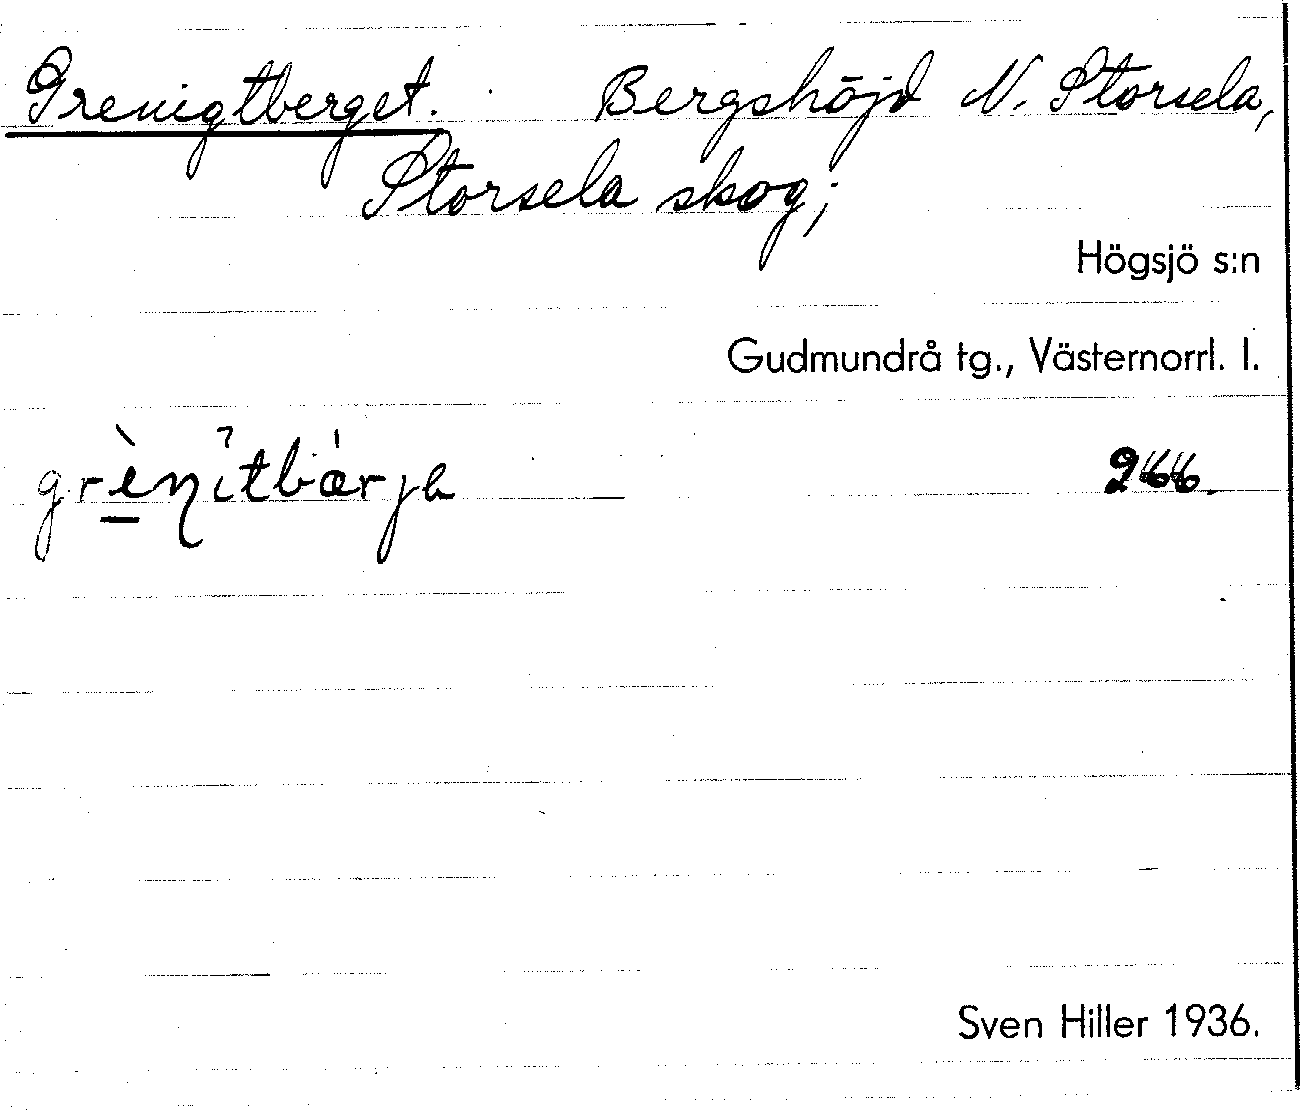 Grenigtberget. Bergshöjd N. Storsela,
Storsela skog;
Högsjö s:n
Gudmundrå tg., Västernorrl. l.
grènitbärja
Sven Hiller 1936.